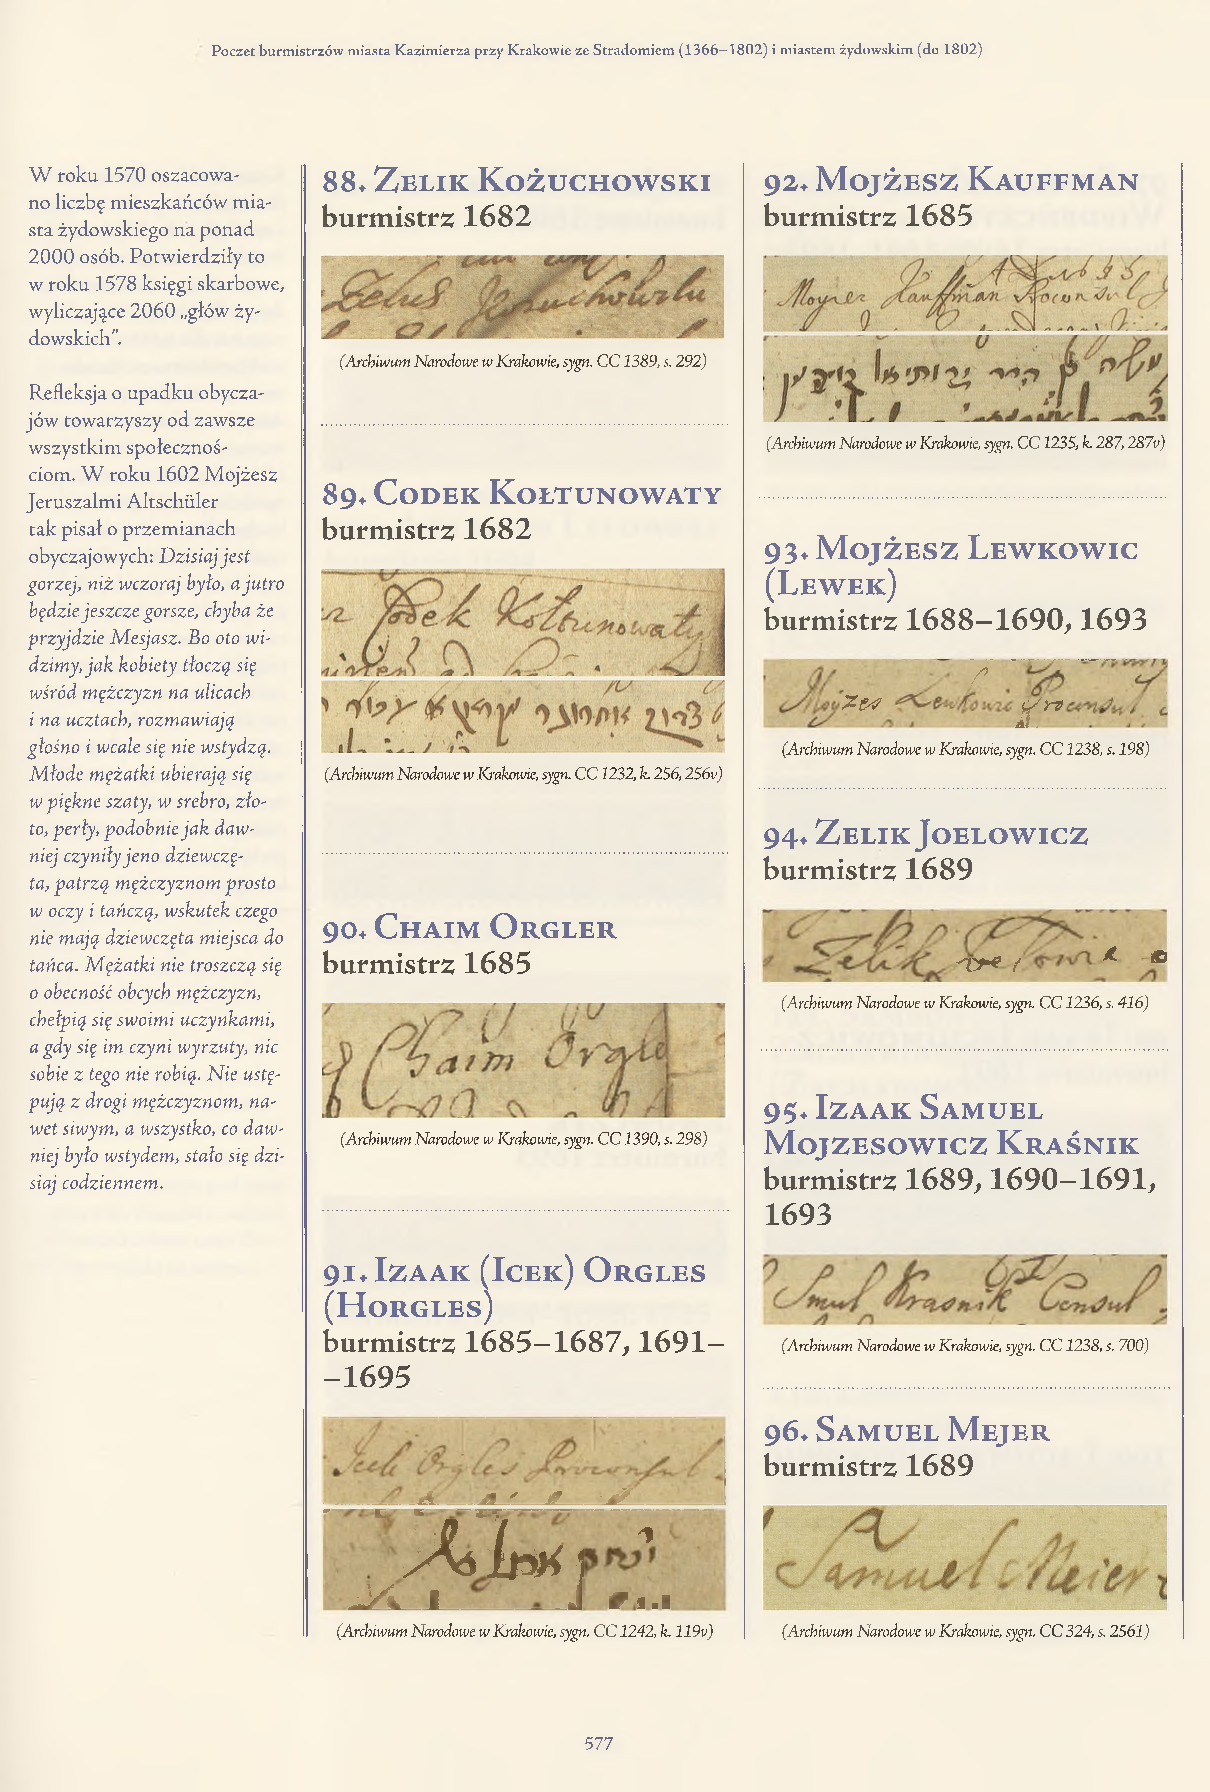 Poczet burmistrzów miasta Kazimierza przy Krakowie ze Stradomiem (1366–1802) i miastem żydowskim (do 1802)
W roku 1570 oszacowa-
no liczbę mieszkańców mia-
sta żydowskiego na ponad
2000 osób. Potwierdziły to
w roku 1578 księgi skarbowe,
wyliczające 2060 „głów ży-
dowskich”.
Refleksja o upadku obycza-
jów towarzyszy od zawsze
wszystkim społecznoś-
ciom. W roku 1602 Mojżesz
Jeruszalmi Altschüler
tak pisał o przemianach
obyczajowych: Dzisiaj jest
gorzej, niż wczoraj było, a jutro
będzie jeszcze gorsze, chyba że
przyjdzie Mesjasz. Bo oto wi-
dzimy, jak kobiety tłoczą się
wśród mężczyzn na ulicach
i na ucztach, rozmawiają
głośno i wcale się nie wstydzą.
Młode mężatki ubierają się
w piękne szaty, w srebro, zło-
to, perły, podobnie jak daw-
niej czyniły jeno dziewczę-
ta, patrzą mężczyznom prosto
w oczy i tańczą, wskutek czego
nie mają dziewczęta miejsca do
tańca. Mężatki nie troszczą się
o obecność obcych mężczyzn,
chełpią się swoimi uczynkami,
a gdy się im czyni wyrzuty, nic
sobie z tego nie robią. Nie ustę-
pują z drogi mężczyznom, na-
wet siwym, a wszystko, co daw-
niej było wstydem, stało się dzi-
siaj codziennem.
88. Zelik Kożuchowski
burmistrz 1682
(Archiwum Narodowe w Krakowie, sygn. CC 1389, s. 292)
89. Codek Kołtunowaty
burmistrz 1682
Kołtunowaty
(Archiwum Narodowe w Krakowie, sygn. CC 1232, k. 256, 256v)
90. Chaim Orgler
burmistrz 1685
Chaim Orgle
(Archiwum Narodowe w Krakowie, sygn. CC 1390, s. 298)
91. Izaak (Icek) Orgles
(Horgles)
burmistrz 1685–1687, 1691–
–1695
Orgles Proconsul
(Archiwum Narodowe w Krakowie, sygn. CC 1242, k. 119v)
92. Mojżesz Kauffman
burmistrz 1685
Kauffman Proconsul
(Archiwum Narodowe w Krakowie, sygn. CC 1235, k. 287, 287v)
93. Mojżesz Lewkowic
(Lewek)
burmistrz 1688–1690, 1693
Moyzes Lewkowic Proconsul
(Archiwum Narodowe w Krakowie, sygn. CC 1238, s. 198)
94. Zelik Joelowicz
burmistrz 1689
Zelik
(Archiwum Narodowe w Krakowie, sygn. CC 1236, s. 416)
95. Izaak Samuel
Mojzesowicz Kraśnik
burmistrz 1689, 1690–1691,
1693
Smul Krasnik Consul
(Archiwum Narodowe w Krakowie, sygn. CC 1238, s. 700)
96. Samuel Mejer
burmistrz 1689
Samuel Meier
(Archiwum Narodowe w Krakowie, sygn. CC 324, s. 2561)
577